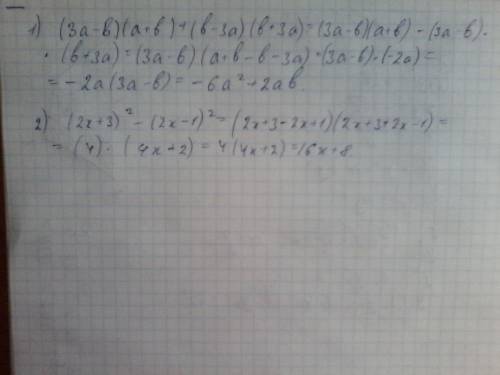 1) (3a-в)(a+в)+(в-3a)(в+3a)=(3a-в)(a+в)-(3a-в)·
·(в+3a)=(3a-в)(a+в-в-3a)=(3a-в)·(-2a)=
=-2a(3a-в)=-6a²+2aв.
2) (2x+3)²-(2x-1)²=(2x+3-2x+1)(2x+3+2x-1)=
=(4)·(4x+2)=4(4x+2)=16x+8.